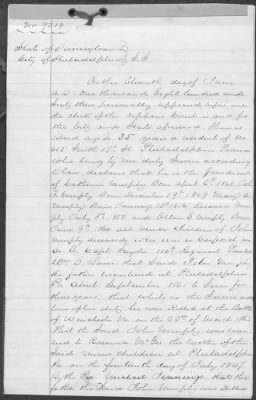 No. 7219.
State of Pennsylvania
City of Philadelphia S.S.
On this Eleventh day of June
A.D. One thousand Eight hundred and
Sixty three personally appeared before me
the Clerk of the Orphans Court in and for
the City and State aforesaid Thomas
aged 35 years a resident of No
615 South 17th St Philadelphia Penna
who being by me duly Sworn according
to law declares that he is the guardian
of Catherine Murphy Born April 6th John
Murphy Born 19th 1849 Mary A
Murphy Born 12th 1856
Murphy July 8th 1858 and Ellen E Murphy Born
June 9th 1860 minor children of John
Murphy deceased who was a Corporal in
Co. C. Capt 110th Regiment Penna
Wm D. Lewis that Said John Murphy
the father was enrolled at Philadelphia
Pa about September 1861 to serve for
three years that while in the Service and
line of his duty he was Killed at the Battle
of Winchester Va on the 23rd of March 1862
That the Said John Murphy was mar-
ried to Rosanna the mother of the
Said minor children at Philadelphia
Pa on the fourteenth day of July 1847
by the Rev Michael that the
father the Said John Murphy was Killed